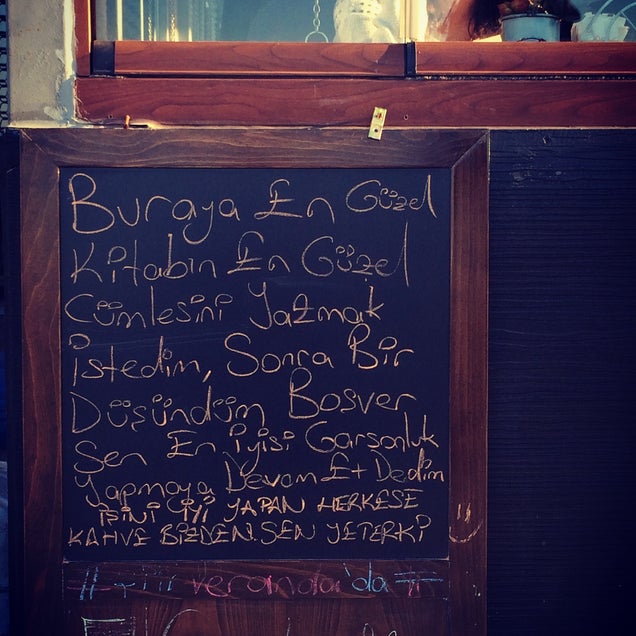 Buraya En Güzel
Kitabın En Güzel
Cümlesini Yazmak
istedim, Sonra Bir
Düşündüm Boşver
Sen En iyisi Garsonluk
Yapmaya Devam Et Dedim
iŞiNi iYi YAPAN HERKESE
KAHVE BiZDEN. SEN YETERKi
veranda'da